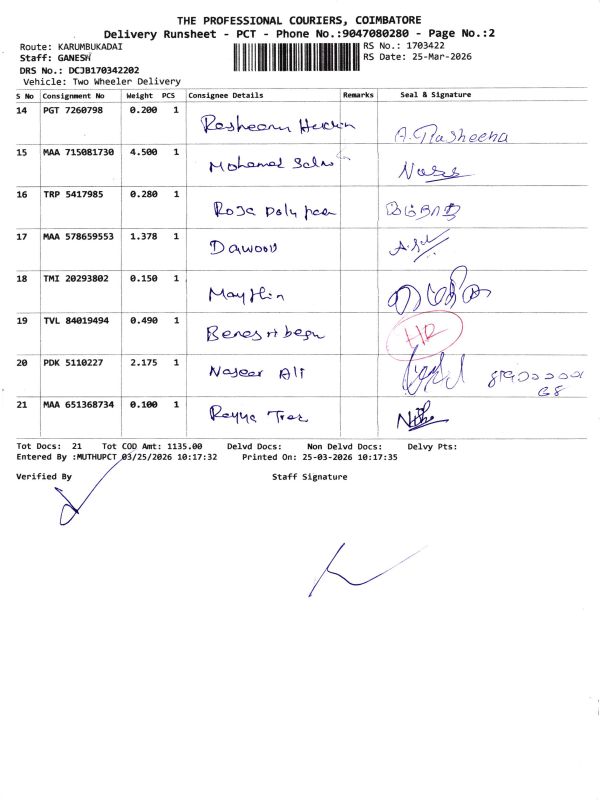 THE PROFESSIONAL COURIERS, COIMBATORE
Delivery Runsheet - PCT - Phone No.:9047080280 - Page No.:2
Route: KARUMBUKADAI RS No.: 1703422
Staff: GANESH RS Date: 25-Mar-2026
DRS No.: DCJB170342202
Vehicle: Two Wheeler Delivery
S No Consignment No Weight PCS Consignee Details Remarks Seal & Signature
14 PGT 7260798 0.200 1 A. Rasheena
15 MAA 715081730 4.500 1 Mohamed
16 TRP 5417985 0.280 1 Roja
17 MAA 578659553 1.378 1 Dawood
18 TMI 20293802 0.150 1
19 TVL 84019494 0.490 1 HR
20 PDK 5110227 2.175 1 Naseer Ali
21 MAA 651368734 0.100 1
Tot Docs: 21 Tot COD Amt: 1135.00 Delvd Docs: Non Delvd Docs: Delvy Pts:
Entered By :MUTHUPCT 03/25/2026 10:17:32 Printed On: 25-03-2026 10:17:35
Verified By Staff Signature